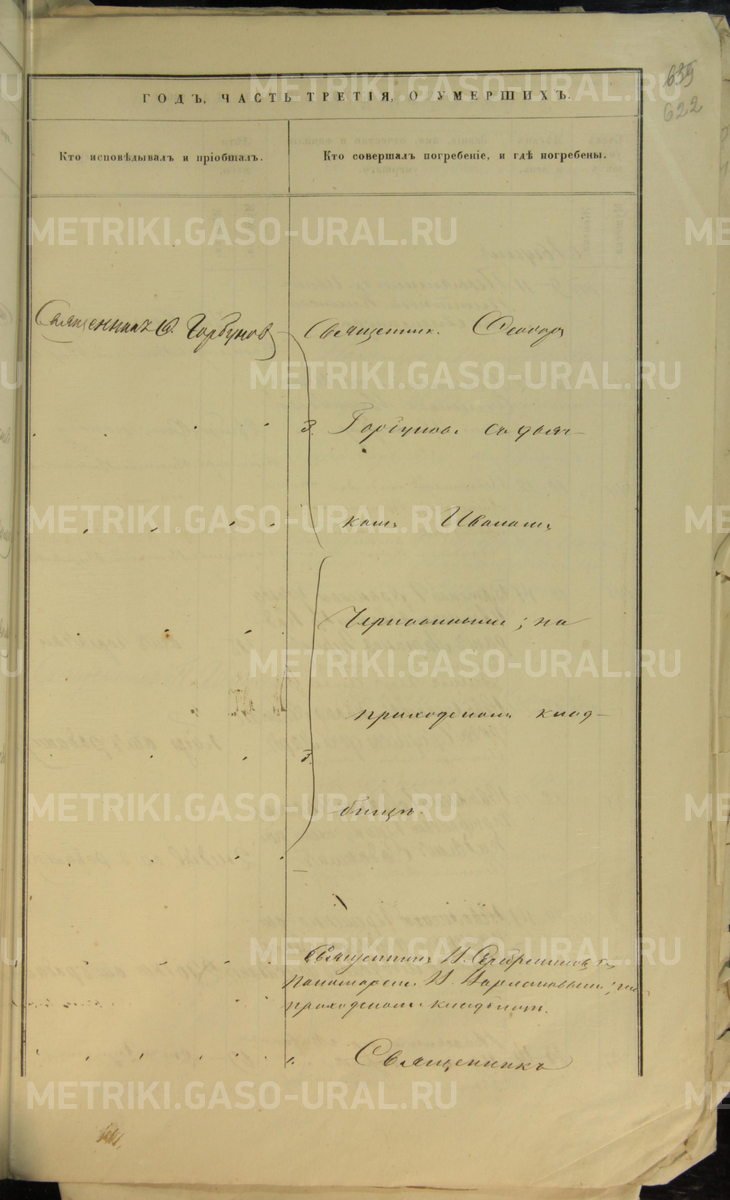 635
622
ГОДЪ, ЧАСТЬ ТРЕТІЯ, О УМЕРШИХЪ.
Кто исповѣдывалъ и пріобщалъ.
Кто совершалъ погребеніе, и гдѣ погребены.
Священникъ Ѳ. Горбуновъ
Священник. Ѳеодоръ
Горбуновъ съ дьяч-
комъ Иваномъ
; на
приходскомъ клад-
бищѣ.
Священникъ Н. съ
пономаремъ Н. ; на
приходскомъ кладбищѣ.
Священникъ
METRIKI.GASO-URAL.RU